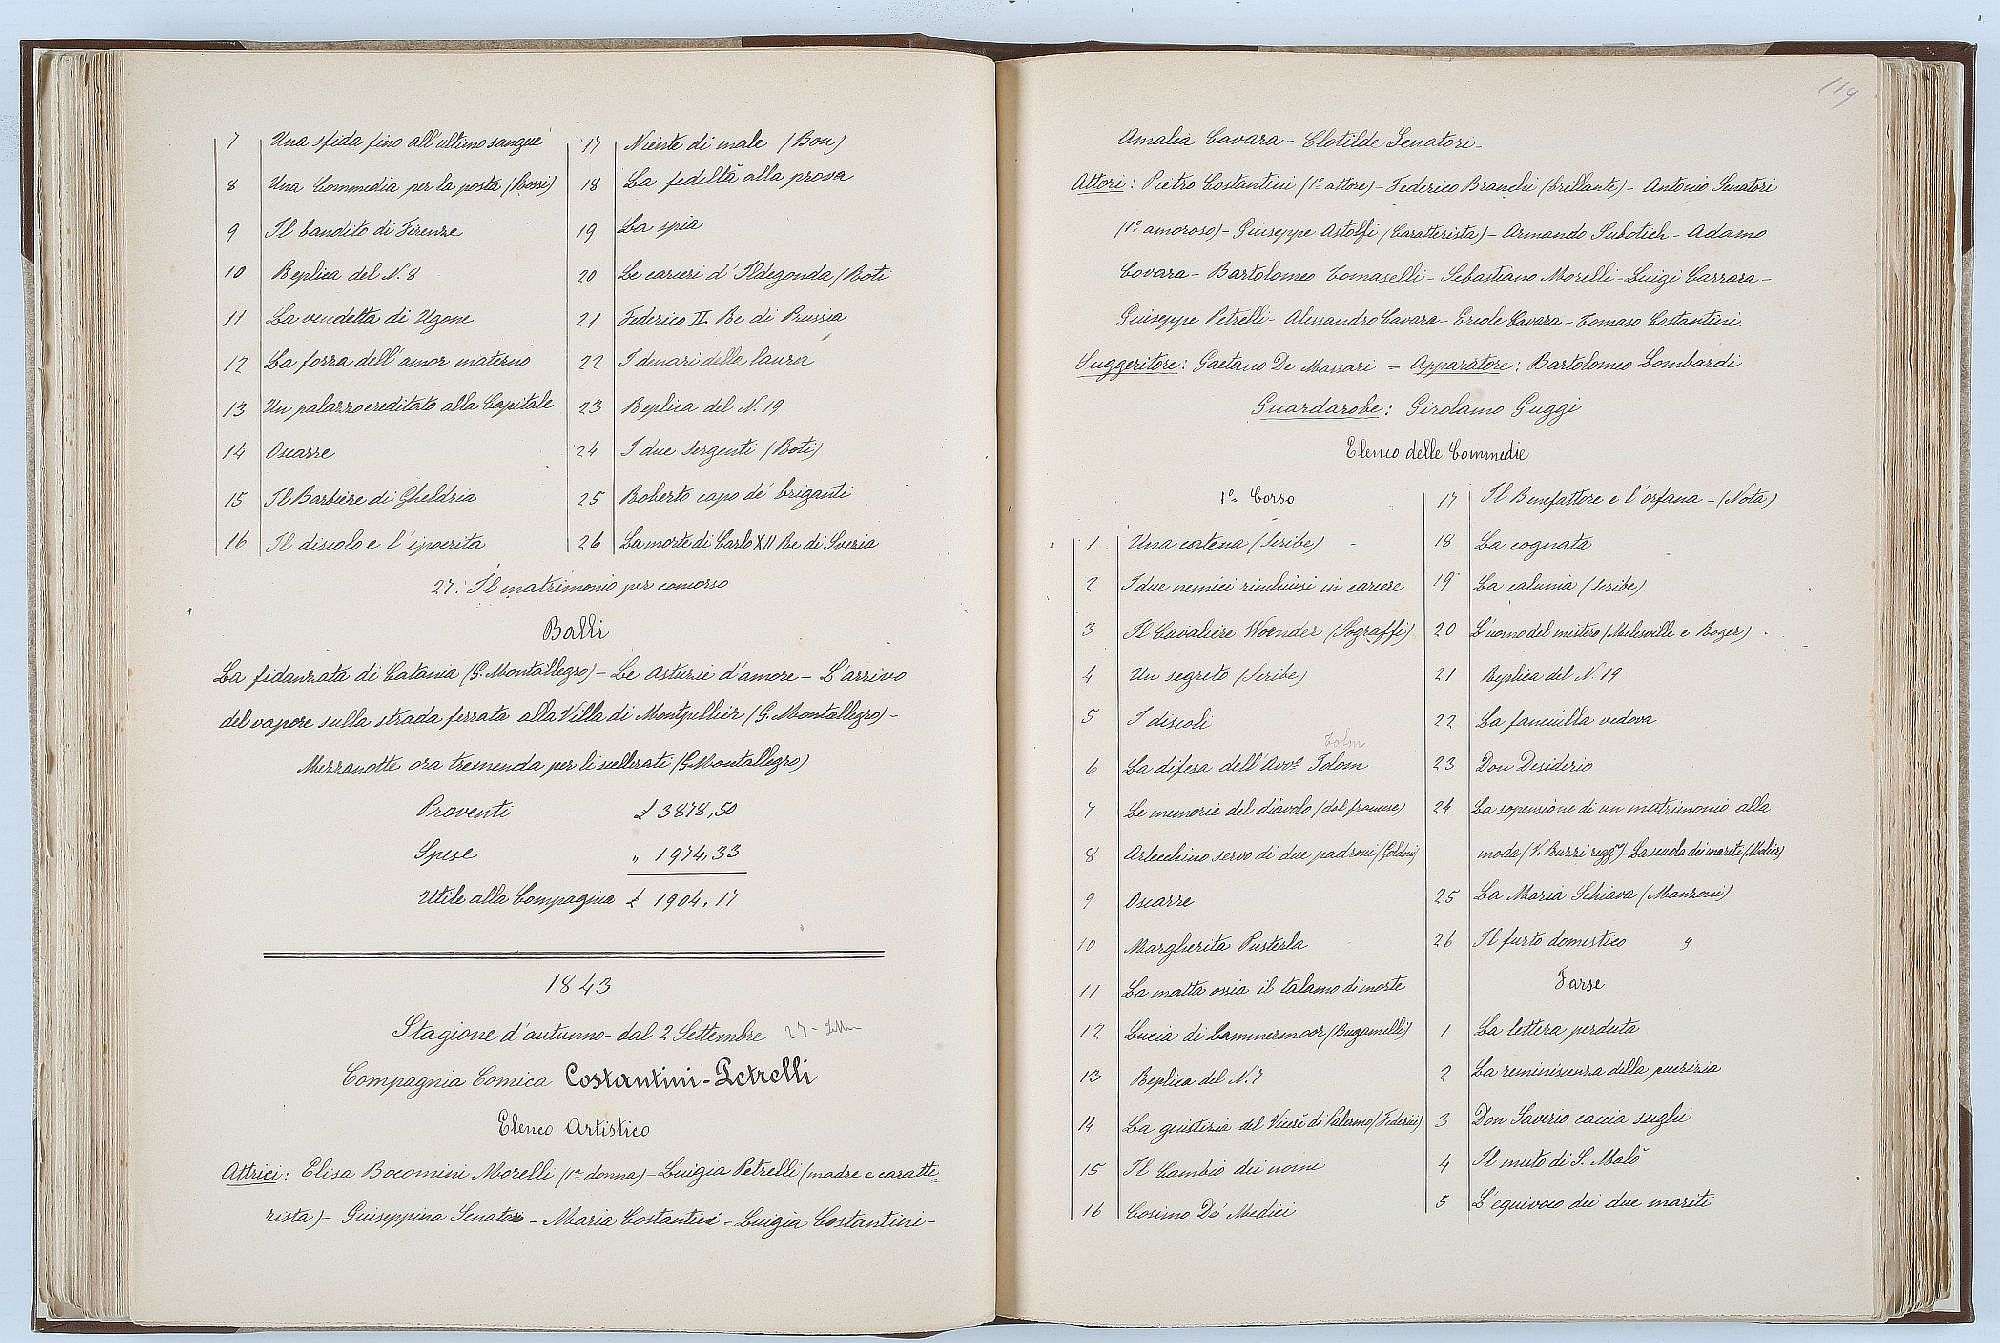 7 Una sfida fino all'ultimo sangue
8 Una Commedia per la posta (Roni)
9 Il bandito di Firenze
10 Replica del N. 8
11 La vendetta di Ugone
12 La forza dell'amor materno
13 Un palazzo ereditato alla Capitale
14 Oscarre
15 Il Barbiere di Gheldria
16 Il discolo e l'ipocrita
17 Niente di male (Bon)
18 La fedeltà alla prova
19 La spia
20 Le carceri d'Ildegonda (Roti
21 Federico II Re di Prussia
22 I denari della laurea
23 Replica del N. 19
24 I due sergenti (Roti)
25 Roberto capo de' briganti
26 La morte di Carlo XII Re di Svezia
27. Il matrimonio per concorso
Balli
La fidanzata di Catania (G. Montallegro) - Le Astuzie d'amore - L'arrivo
del vapore sulla strada ferrata alla Villa di Montpellier (G. Montallegro) -
Mezzanotte ora tremenda per li scellerati (G. Montallegro)
Proventi £ 3878,50
Spese " 1974,33
Utile alla Compagnia £ 1904,17
1843
Stagione d'autunno - dal 2 Settembre 27
Compagnia Comica Costantini-Petrelli
Elenco Artistico
Attrici: Elisa Bocomini Morelli (1ª donna) - Luigia Petrelli (madre e caratte-
rista) - Giuseppina Senatori - Maria Costantini - Luigia Costantini -
119
Amalia Cavara - Clotilde Senatori -
Attori: Pietro Costantini (1º attore) - Federico Branchi (brillante) - Antonio Senatori
(1º amoroso) - Giuseppe Astolfi (Caratterista) - Armando Subotich - Adamo
Covara - Bartolomeo Tomaselli - Sebastiano Morelli - Luigi Carrara -
Giuseppe Petrelli - Alessandro Cavara - Ercole Cavara - Tomaso Costantini.
Suggeritore: Gaetano De Massari = Apparatore: Bartolomeo Lombardi
Guardarobe: Girolamo Guggi
Elenco delle Commedie
1º Corso
1 Una catena (Scribe) -
2 I due nemici rinchiusi in carcere
3 Il Cavaliere Woender (Sograffi)
4 Un segreto (Scribe)
5 I discoli
6 La difesa dell'Avvº Tolom
7 Le memorie del diavolo (dal francese)
8 Arlecchino servo di due padroni (Goldoni)
9 Oscarre
10 Margherita Pusterla
11 La matta ossia il talamo di morte
12 Lucia di Lammermoor (Bugamelli)
13 Replica del N. 7
14 La giustizia del Vicerè di Palermo (Federici)
15 Il Cambio dei nomi
16 Cosimo De' Medici
17 Il Benefattore e l'orfana - (Nota)
18 La cognata
19 La calunia (Scribe)
20 L'uomo del mistero (Melesville e Roger)
21 Replica del N. 19
22 La fanciulla vedova
23 Don Desiderio
24 La sopensione di un matrimonio alla
moda (V. Buzzi regg.) La scuola dei mariti (Molier)
25 La Maria Schiava (Manzoni)
26 Il furto domestico
Farse
1 La lettera perduta
2 La reminiscenza della puerizia
3 Don Saverio caccia sughi
4 Il muto di S. Malò
5 L'equivoco dei due mariti